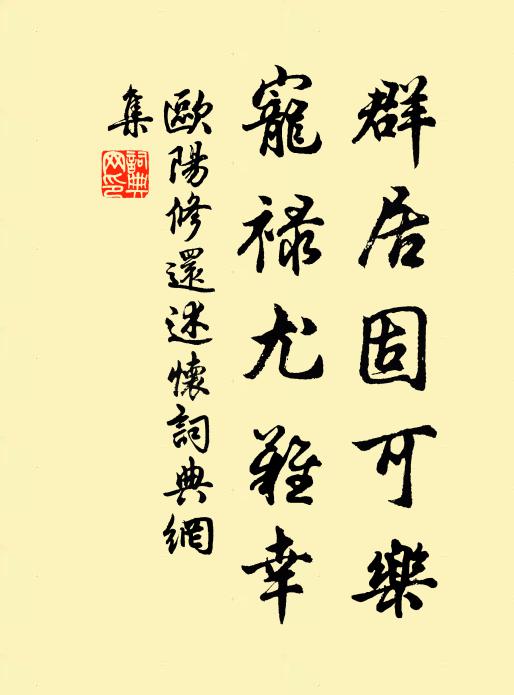 群居固可樂
寵祿尤難幸
歐陽修還述懷詞典網
集
詞典
网印